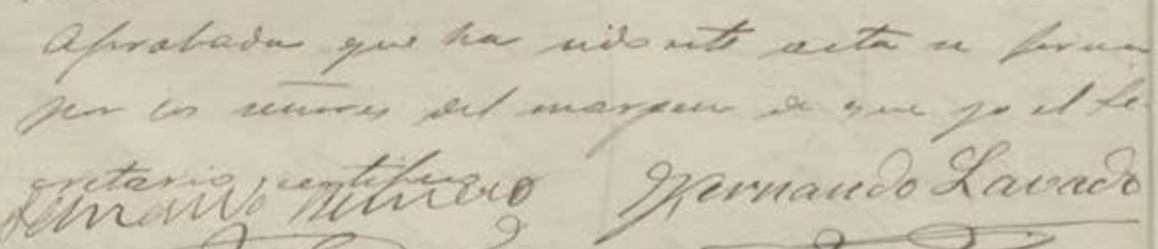 Aprobada que ha sido esta acta se firma
por los señores del margen de que yo el Se-
cretario, certifico
Fernando Lavado